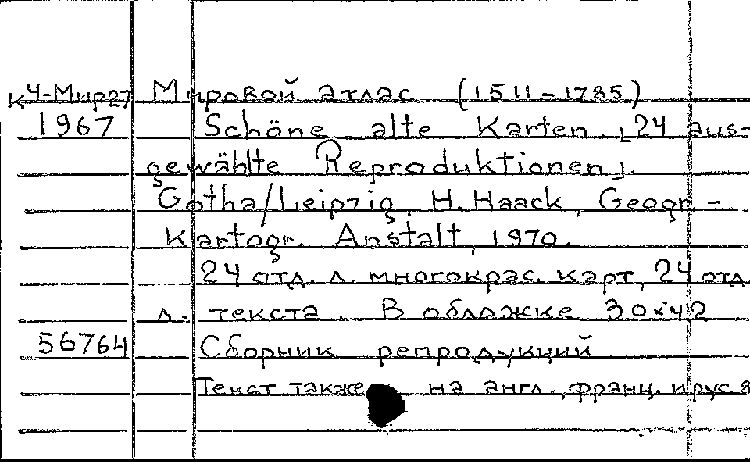 К Ч-Мир27 Мировой атлас (1511-1785)
1967 Schöne alte Karten. [24 aus-
gewählte Reproduktionen].
Gotha/Leipzig, H. Haack, Geogr-
Kartogr. Anstalt, 1970.
24 отд. л. многокрас. карт, 24 отд.
л. текста. В обложке 30×42
56764 Сборник репродукций
Текст также на англ., франц. и рус. я